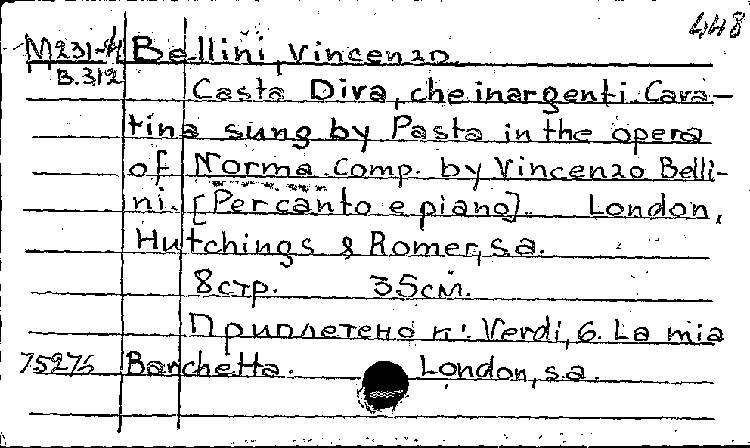 448
M231-4 Bellini, Vincenzo.
B.312
Casta Diva, che inargenti. Cava-
tina sung by Pasta in the opera
of Norma comp. by Vincenzo Belli-
ni. [Per canto e piano]. London,
Hutchings & Romer, s.a.
8 стр. 35 см.
Приплетено к: Verdi, G. La mia
75275 Barchetta. London, s.a.